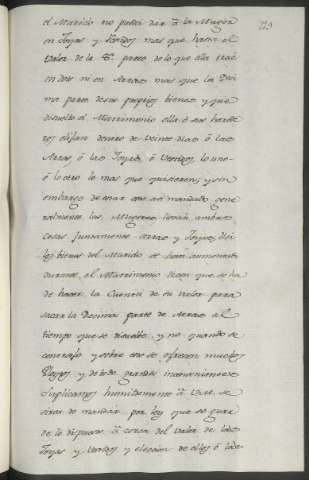 el Marido no pueda dar à la Muger
en Joyas y Vestidos mas que hasta el
Valor de la 8.ª parte de lo que ella traè
en dote ni en Arras mas que la Dezi
ma parte de sus propios bienes y que
disuelto el Matrimonio ella ó sus herede
ros elijan dentro de Veinte dias ó las
Arras, ó las Joyas, ó Vestidos, lo uno
ó lo otro lo mas que quisieren, y sin
embargo de estar esto asi mandado gene
ralmente las Mugeres llevan ambas
cosas juntamente Arras y Joyas, si
los bienes del Marido se han aumentado
durante el Matrimonio dicen que se ha
de hacer la Cuenta de su valor para
sacar la Decima parte de Arras al
tiempo que se disuelve, y no quando se
contrajo y sobre esto se ofrecen muchos
Pleytos y de todo grandes inconvenientes
Suplicamos humilmente à V.M. se
sirva de mandar por ley que se guar
de lo dispuesto à cerca del Valor de las
Joyas y Vestidos y eleccion de ellos ó las